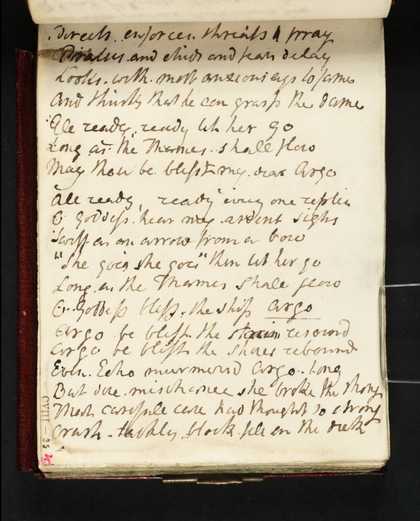 Directs. enforces. threats & pray
and chids and fears delay
Looks. with most anxious eye to fame
And thinks that he can grasp the dame
All ready, ready let her go
Long as the Thames. shall flow
May thou be blest my dear Argo
All ready, ready every one replies
O Goddess. hear my ardent sighs
Swift as an arrow from a bow
"She goes she goes" then let her go
Long. as the Thames shall flow
O Goddess bless. the ship Argo
Argo be blest the strain resound
Argo be blest the shores rebound
Even. Echo murmured Argo. long
But dire mischance she broke the thong
Which care had thought so strong
Crash. block fell on the deck
CVIII - 35